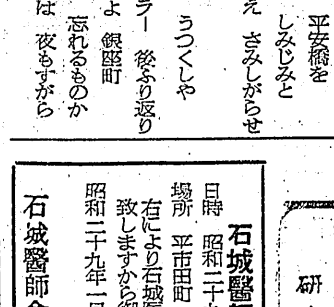 平安橋を
しみじみと
え さみしがらせ
うつくしや
ラー 後ふり返り
よ 銀座町
忘れるものか
は 夜もすがら
研
石城醫師
日時 昭和二十九
場所 平市田町
右により石城醫
致しますから
昭和二十九年一
石城醫師會